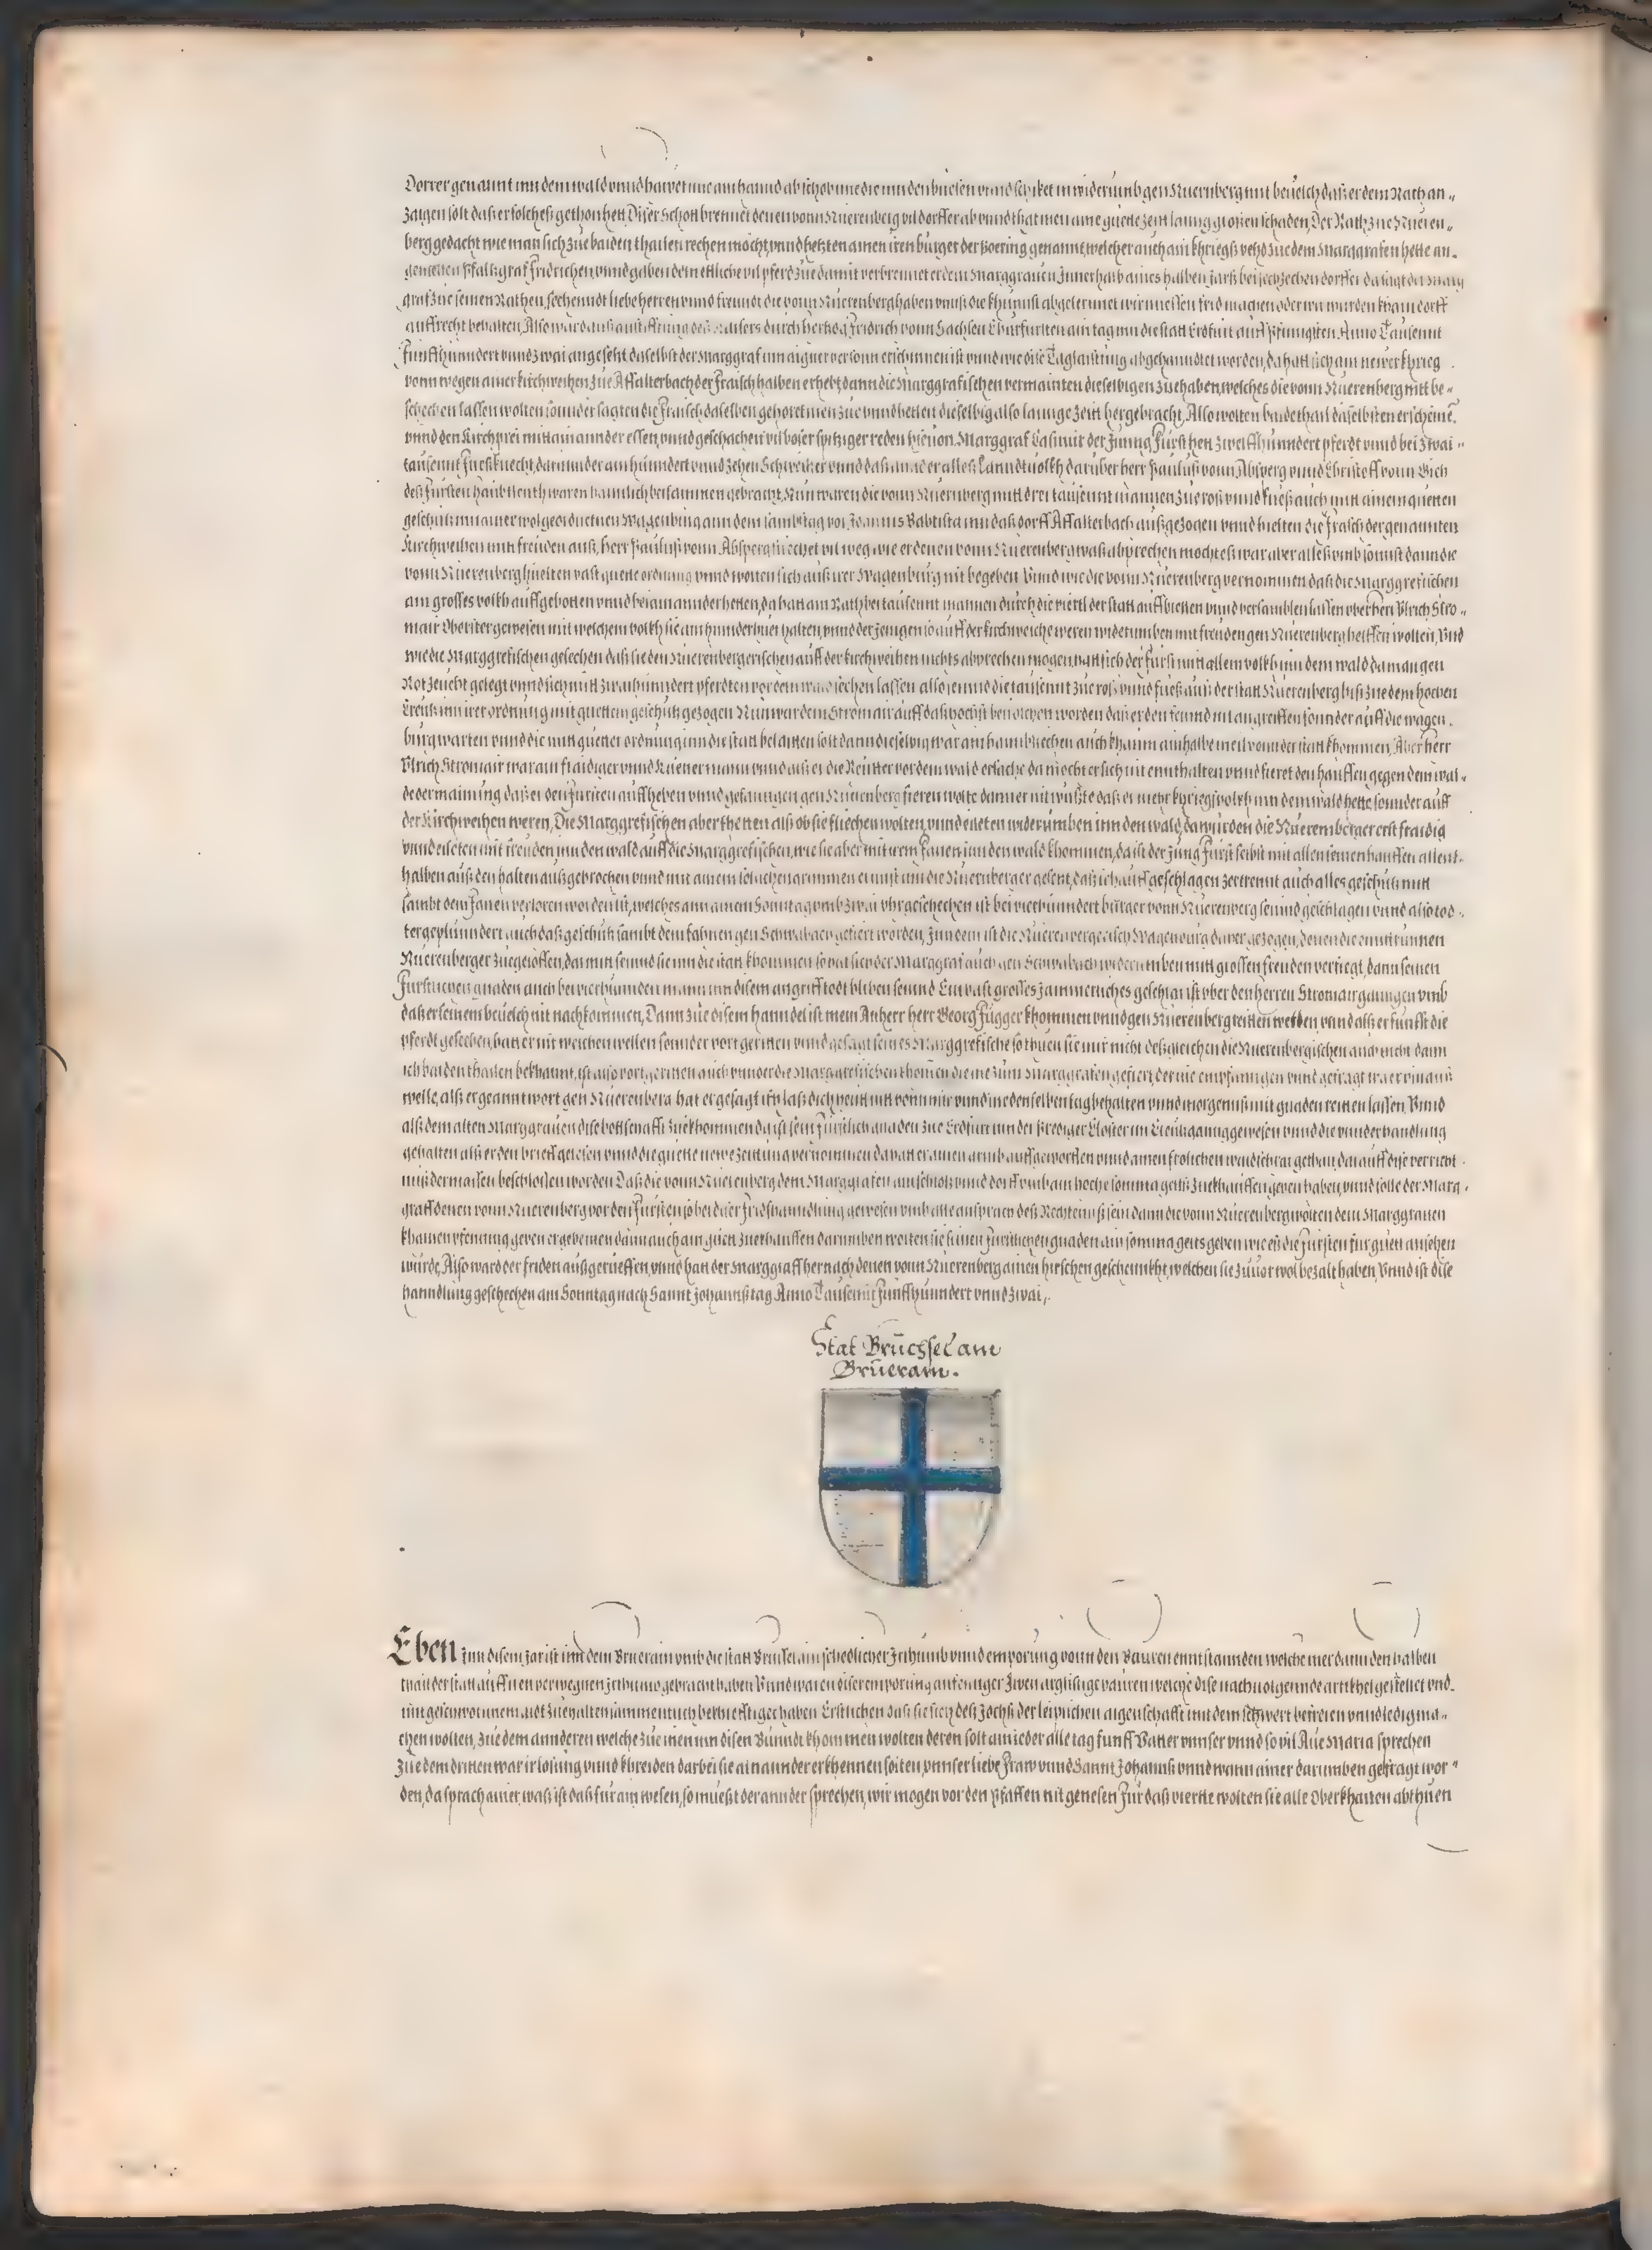 Dorrer genannt inn dem wald vnnd hawet ime ain hannd ab schob ime die inn den buesen vnnd schicket in widerumb gen Nuernberg mit beuelch daß er dem Rath an„
zaigen solt daß er solches gethon hett Diser Schott brennet denen vonn Nuerenberg vil dorffer ab vnnd that inen aine guete zeit lanng grossen schaden, Der Rath zue Nueren„
berg gedacht wie man sich zue baiden thailen rechen möcht, vnnd hetzten ainen iren burger der genannt, welcher auch ain khriegß vehd zue dem Marggrafen hette an„
Pfalltzgraf Fridrichen, vnnd gaben dem ettliche vil pferd zue damit verbrennet er dem Marggrauen Innerhalb aines halben jarß bei sechzechen dorffer da sagt der Marg
graf zue seinen Rathen, sechenndt liebe herren vnnd freundt die vonn Nuerenberg haben vnnß die khunnst abgelernnet wir muessen frid machen oder wir wurden khain dorff
auffrecht behalten, Also ward auß anstifftung deß Kaisers durch hertzog Fridrich vonn Sachsen Churfursten ain tag inn die statt Erdfurt auff Pfinngsten, Anno Tausennt
Funffhunndert vnnd zwai angesetzt daselbst der Marggraf inn aigner person erschinnen ist vnnd wie dise Taglaistung abgehanndlet worden, da hatt sich ain newer khrieg
vonn wegen ainer kirchweihen zue Affalterbach der fraisch halben erhebt, dann die Marggrafischen vermainten dieselbigen zuehaben, welches die vonn Nuerenberg nitt be„
schechen lassen wolten sonnder sagten die Fraisch daselben gehoret inen zue vnnd hetten dieselbig also lannge zeitt hergebracht, Also wolten baide thail daselbsten erscheine,
vnnd den Kirchprei mitt ainannder essen, vnnd geschachen vil boser spitziger reden hieuon, Marggraf Casimir der Junng Furst hett zwelffhunndert pferdt vnnd bei zwai„
tausennt Fueßknecht, darunnder ain hunndert vnnd zechen Schweitzer vnnd daß annder alles Lanndtuolkh darüber herr Paulus vonn Absperg vnnd Christoff vonn Gich
deß Fursten haubtleuth waren haimlich beisammen gebracht, Nun waren die vonn Nuernberg mitt drei tausennt mannen zue roß vnnd fueß auch mitt ainem guetten
geschutz inn ainer wolgeordnetten Wagenburg ann dem sambstag vor Joannis Babtista inn daß dorff Affalterbach außgezogen vnnd hielten die fraisch der genannten
Kirchweihen mitt freuden auß, herr Paulus vonn Absperg suechet vil weg wie er denen vonn Nuerenberg waß abprechen möchte, es war aber alleß vmb sonnst dann die
vonn Nuerenberg hielten vast guete ordnung vnnd wolten sich auß irer Wagenburg nit begeben Vnnd wie die vonn Nuerenberg vernommen daß die Marggrefischen
ain grosses volkh auffgebotten vnnd bei ainannder hetten, da hatt ain Rath bei tausennt mannen durch die viertl der statt auffbietten vnnd versamblen lassen vber herr Vlrich Stro„
mair Oberister gewesen mit welchem volkh sie ain hinnderhuet halten, vnnd der jenigen so auff der kirchweiche weren widerumben mit freuden gen Nuerenberg helffen wolten, Vnd
wie die Marggrefischen gesechen daß sie den Nuerenbergerischen auff der kirchweihen nichts abprechen mogen, hatt sich der Furst mitt allem volkh inn dem wald da man gen
Rotzeücht gelegt vnnd sich mitt zwaihunndert pferdten vor dem wald sechen lassen also seinnd die tausennt zue roß vnnd fueß auß der statt Nuerenberg biß zue dem hochen
Creutz inn irer ordnung mit guettem geschutz gezogen Nun war dem Stromair auff daß hochst beuolchen worden daß er den feinnd nit angreiffen sonnder auff die wagen„
burg warten vnnd die mitt guetter ordnung inn die statt belaiten solt dann dieselbig war am haimbziechen auch khaum ain halbe meil vonn der statt khommen, Aber herr
Vlrich Stromair war ain fraidiger vnnd Kuener mann vnnd alß er die Reutter vor dem wald ersache da möcht er sich nit ennthalten vnnd fieret den hauffen gegen dem wal„
de der mainung daß er den Fursten auffheben vnnd gefanngen gen Nuerenberg fieren wolte dann er nit wußte daß er mehr khriegsvolkh inn dem wald hette sonnder auff
der Kirchweihen weren, Die Marggrefischen aber thetten alß ob sie fliechen wolten, vnnd eileten widerumben inn den wald, da wurden die Nuerennberger erst fraidig
vnnd eileten mit freuden inn den wald auff die Marggrefischen, wie sie aber mit irem Fanen inn den wald khommen, da ist der Jung Furst selbst mit allen seinen hauffen allent„
halben auß den halten außgebrochen vnnd mit ainem solchen grimmen ernnst inn die Nuernberger gesetzt, daß sich auff geschlagen zertrennt auch alles geschütz mitt
sambt dem Fanen verloren worden ist, welches ann ainem Sonntag vmb zwai vhr geschechen ist bei vierhunndert burger vonn Nuerenberg seinnd geschlagen vnnd also tod„
ter geplunndert auch daß geschutz sambt dem fahnen gen Schwabach gefiert worden, Inn dem ist die Nuerenbergerisch Wagenburg daher gezogen, denen die enntrunnen
Nuerenberger zuegeloffen, da mitt seinnd sie inn die statt khommen so hat sich der Marggraf auch gen Schwabach widerumben mitt grossen freuden verfiegt, dann seinen
Furstlichen gnaden auch bei vierhunnden mann inn disem angriff todt bliben seinnd Ein vast grosses Jammerliches geschrai ist vber den herren Stromair ganngen vmb
daß er seinem beuelch nit nachkommen, Dann zue disem hanndel ist mein Anherr herr Georg Fugger khommen vnnd gen Nuerenberg reitten wellen vnnd alß er funfft die
pferdt gesechen, hatt er nit weichen wellen sonnder vort geritten vnnd gesagt seinnd es Marggrefische so thuen sie mir nicht deßgleichen die Nuerenbergischen auch nicht dann
ich baiden thailen bekhannt, ist also vort geritten auch vnnder die Marggrefischen khomen die ine zum Marggrafen gefiert, der ine empfanngen vnnd gefragt wa er hinauß
welle, alß er geanntwort gen Nuerenberg hat er gesagt ich laß dich heutt nit vonn mir vnnd ine denselben tag behalten vnnd morgenns mit gnaden reitten lassen, Vnnd
alß dem alten Marggrauen dise bottschafft zuekhommen da ist sein Furstlich gnaden zue Erdfurt inn der Prediger Closter im Creutzganng gewesen vnnd die vnnderhandlung
gehalten alß er den brieff gelesen vnnd die guette newe zeittung vernommen da hatt er ainen arm b auffgeworffen vnnd ainen frolichen waidschrai gethan, darauff dise verricht„
ung dermassen beschlossen worden Daß die vonn Nuerenberg dem Marggrafen ain schloß vnnd dorff vmb ain hoche somma gellts zuekhauffen geben haben, vnnd solle der Marg„
graff denen vonn Nuerenberg vor den Fursten so bei diser Fridshanndlung gewesen vmb alle ansprach deß Rechtenns sein dann die vonn Nuerenberg wolten dem Marggrauen
khainen pfenning geben er gebe inen dann auch ain guett zuekhauffen darumben wolten sie seinen Furstlichen gnaden ain somma gelts geben wie es die Fursten fur guett ansehen
wurde, Also ward der friden außgerueffen, vnnd hatt der Marggraff hernach denen vonn Nuerenberg ainen hirschen geschennkht, welchen sie zuuor wol bezalt haben, Vnnd ist dise
hanndlung geschechen am Sonntag nach Sannt Johannstag Anno Tausennt Funffhunndert vnnd zwai,
Stat Brüchsel am
Brüeram.
Eben Inn disem Jar ist inn dem Bruerain vmb die statt Brussel ain schedlicher Irthumb vnnd empörung vonn den Bauren enntstannden welche mer dann den halben
thail der statt auff iren verwegnen Irthumb gebracht haben Vnnd waren diser emporung anfennger Zwen arglistige bauren welche dise nachuolgennde artikhel gestellet vnd„
mit geschwornnem aidt zuehalten sammentlich bekhrefftiget haben Erstlichen daß sie sich deß Jochß der leiplichen aigenschafft mit dem schwert befreien vnnd ledig ma„
chen wolten, Zue dem annderen welche zue inen inn disen Bunndt khommen wolten deren solt ain ieder alle tag funff Vatter vnnser vnnd so vil Aue Maria sprechen
Zue dem dritten war ir losung vnnd khreiden darbei sie ainannder erkhennen solten, vnnser liebe Fraw vnnd Sannt Johanns vnnd wann ainer darumben gefragt wor„
den, da sprach ainer, waß ist daß fur ain wesen, so mueßt der annder sprechen, wir mogen vor den Pfaffen nit genesen Fur daß vierte wolten sie alle Oberkhaiten abthuen